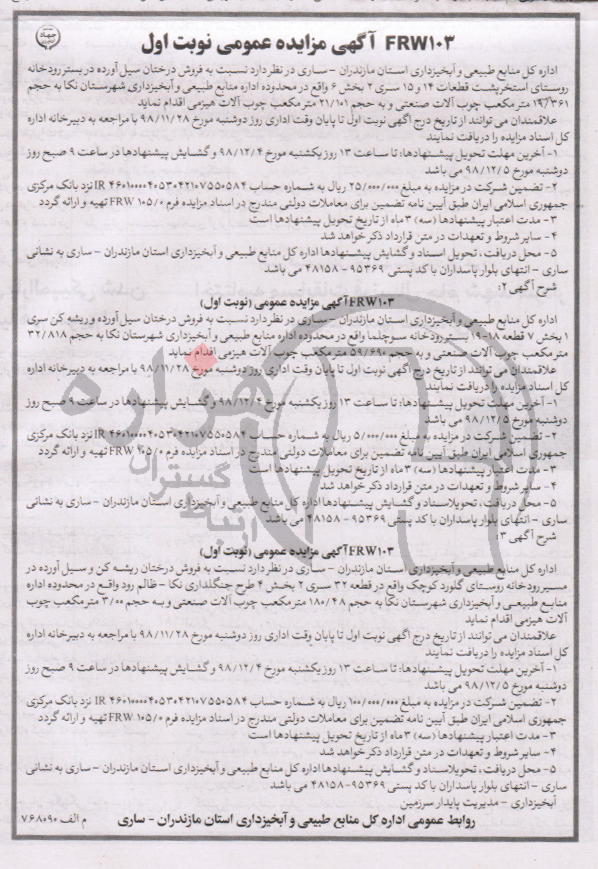 FRW۱۰۳ آگهی مزایده عمومی نوبت اول
جهاد
اداره کل منابع طبیعی و آبخیزداری استان مازندران - ساری در نظر دارد نسبت به فروش درختان سیل آورده در بستر رودخانه
روستای استخرپشت قطعات ۱۴ و ۱۵ سری ۲ بخش ۶ واقع در محدوده اداره منابع طبیعی و آبخیزداری شهرستان نکا به حجم
۱۹/۳۶۱ متر مکعب چوب آلات صنعتی و به حجم ۲۱/۱۰۱ متر مکعب چوب آلات هیزمی اقدام نماید
علاقمندان می توانند از تاریخ درج آگهی نوبت اول تا پایان وقت اداری روز دوشنبه مورخ ۹۸/۱۱/۲۸ با مراجعه به دبیرخانه اداره
کل اسناد مزایده را دریافت نمایند
۱- آخرین مهلت تحویل پیشنهادها: تا ساعت ۱۳ روز یکشنبه مورخ ۹۸/۱۲/۴ و گشایش پیشنهادها در ساعت ۹ صبح روز
دوشنبه مورخ ۹۸/۱۲/۵ می باشد
۲- تضمین شرکت در مزایده به مبلغ ۲۵/۰۰۰/۰۰۰ ریال به شماره حساب IR ۴۶۰۱۰۰۰۰۴۰۵۳۰۴۲۱۰۷۵۵۰۵۸۴ نزد بانک مرکزی
جمهوری اسلامی ایران طبق آیین نامه تضمین برای معاملات دولتی مندرج در اسناد مزایده فرم FRW ۱۰۵/۰ تهیه و ارائه گردد
۳- مدت اعتبار پیشنهادها (سه) ۳ ماه از تاریخ تحویل پیشنهادها است
۴- سایر شروط و تعهدات در متن قرارداد ذکر خواهد شد
۵- محل دریافت، تحویل اسناد و گشایش پیشنهادها اداره کل منابع طبیعی و آبخیزداری استان مازندران - ساری به نشانی
ساری - انتهای بلوار پاسداران با کد پستی ۹۵۳۶۹-۴۸۱۵۸ می باشد
شرح آگهی ۲:
FRW۱۰۳ آگهی مزایده عمومی (نوبت اول)
اداره کل منابع طبیعی و آبخیزداری استان مازندران - ساری در نظر دارد نسبت به فروش درختان سیل آورده و ریشه کن سری
۱ بخش ۷ قطعه ۱۸-۱۹ بستر رودخانه سوچلما واقع در محدوده اداره منابع طبیعی و آبخیزداری شهرستان نکا به حجم ۳۲/۸۱۸
متر مکعب چوب آلات صنعتی و به حجم ۵۹/۶۹۰ متر مکعب چوب آلات هیزمی اقدام نماید
علاقمندان می توانند از تاریخ درج آگهی نوبت اول تا پایان وقت اداری روز دوشنبه مورخ ۹۸/۱۱/۲۸ با مراجعه به دبیرخانه اداره
کل اسناد مزایده را دریافت نمایند
۱- آخرین مهلت تحویل پیشنهادها: تا ساعت ۱۳ روز یکشنبه مورخ ۹۸/۱۲/۴ و گشایش پیشنهادها در ساعت ۹ صبح روز
دوشنبه مورخ ۹۸/۱۲/۵ می باشد
۲- تضمین شرکت در مزایده به مبلغ ۵/۰۰۰/۰۰۰ ریال به شماره حساب IR ۴۶۰۱۰۰۰۰۴۰۵۳۰۴۲۱۰۷۵۵۰۵۸۴ نزد بانک مرکزی
جمهوری اسلامی ایران طبق آیین نامه تضمین برای معاملات دولتی مندرج در اسناد مزایده فرم FRW ۱۰۵/۰ تهیه و ارائه گردد
۳- مدت اعتبار پیشنهادها (سه) ۳ ماه از تاریخ تحویل پیشنهادها است
۴- سایر شروط و تعهدات در متن قرارداد ذکر خواهد شد
۵- محل دریافت، تحویلاسناد و گشایش پیشنهادها اداره کل منابع طبیعی و آبخیزداری استان مازندران - ساری به نشانی
ساری - انتهای بلوار پاسداران با کد پستی ۹۵۳۶۹-۴۸۱۵۸ می باشد
شرح آگهی ۳:
FRW۱۰۳ آگهی مزایده عمومی (نوبت اول)
اداره کل منابع طبیعی و آبخیزداری استان مازندران - ساری در نظر دارد نسبت به فروش درختان ریشه کن و سیل آورده در
مسیر رودخانه روستای گلورد کوچک واقع در قطعه ۳۲ سری ۲ بخش ۴ طرح جنگلداری نکا - ظالم رود واقع در محدوده اداره
منابع طبیعی و آبخیزداری شهرستان نکا به حجم ۱۸۰/۴۸ متر مکعب چوب آلات صنعتی و به حجم ۳/۰۰ متر مکعب چوب
آلات هیزمی اقدام نماید
علاقمندان می توانند از تاریخ درج آگهی نوبت اول تا پایان وقت اداری روز دوشنبه مورخ ۹۸/۱۱/۲۸ با مراجعه به دبیرخانه اداره
کل اسناد مزایده را دریافت نمایند
۱- آخرین مهلت تحویل پیشنهادها: تا ساعت ۱۳ روز یکشنبه مورخ ۹۸/۱۲/۴ و گشایش پیشنهادها در ساعت ۹ صبح روز
دوشنبه مورخ ۹۸/۱۲/۵ می باشد
۲- تضمین شرکت در مزایده به مبلغ ۱۰۰/۰۰۰/۰۰۰ ریال به شماره حساب IR ۴۶۰۱۰۰۰۰۴۰۵۳۰۴۲۱۰۷۵۵۰۵۸۴ نزد بانک مرکزی
جمهوری اسلامی ایران طبق آیین نامه تضمین برای معاملات دولتی مندرج در اسناد مزایده فرم FRW ۱۰۵/۰ تهیه و ارائه گردد
۳- مدت اعتبار پیشنهادها (سه) ۳ ماه از تاریخ تحویل پیشنهادها است
۴- سایر شروط و تعهدات در متن قرارداد ذکر خواهد شد
۵- محل دریافت، تحویلاسناد و گشایش پیشنهادها اداره کل منابع طبیعی و آبخیزداری استان مازندران - ساری به نشانی
ساری - انتهای بلوار پاسداران با کد پستی ۹۵۳۶۹-۴۸۱۵۸ می باشد
آبخیزداری - مدیریت پایدار سرزمین
روابط عمومی اداره کل منابع طبیعی و آبخیزداری استان مازندران - ساری
م الف ۷۶۸۰۹۰
هزاره
گستران
ارتباط